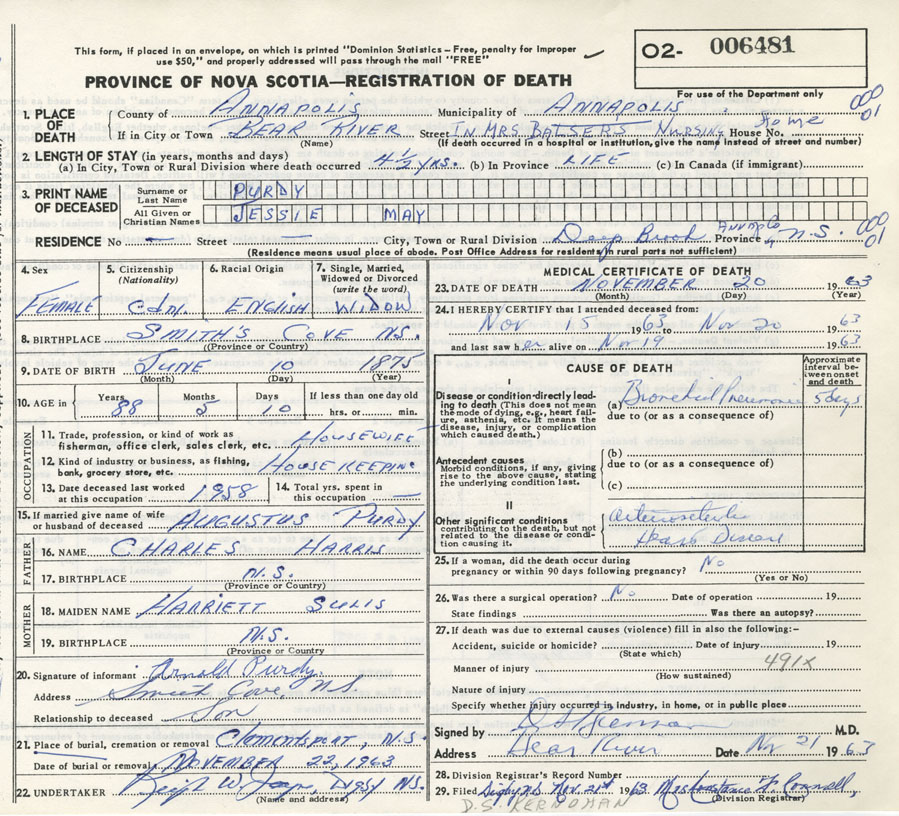 This form, if placed in an envelope, on which is printed "Dominion Statistics – Free, penalty for improper
use $50," and properly addressed will pass through the mail "FREE"
O2- 006481
PROVINCE OF NOVA SCOTIA—REGISTRATION OF DEATH
For use of the Department only
1. PLACE OF DEATH
County of ANNAPOLIS Municipality of ANNAPOLIS
000
01
If in City or Town BEAR RIVER Street IN MRS. BALSERS NURSING Home House No.
(Name) (If death occurred in a hospital or institution, give the name instead of street and number)
2. LENGTH OF STAY (in years, months and days)
(a) In City, Town or Rural Division where death occurred 4 1/2 YRS. (b) In Province LIFE (c) In Canada (if immigrant)
3. PRINT NAME OF DECEASED
Surname or Last Name PURDY
All Given or Christian Names JESSIE MAY
RESIDENCE No — Street — City, Town or Rural Division Deep Brook Province N.S.
000
01
(Residence means usual place of abode. Post Office Address for residents in rural parts not sufficient)
4. Sex 5. Citizenship (Nationality) 6. Racial Origin 7. Single, Married, Widowed or Divorced (write the word)
FEMALE Cdn. ENGLISH WIDOW
8. BIRTHPLACE SMITH'S COVE N.S.
(Province or Country)
9. DATE OF BIRTH JUNE 10 1875
(Month) (Day) (Year)
10. AGE in Years Months Days If less than one day old
88 5 10 hrs. or min.
OCCUPATION
11. Trade, profession, or kind of work as
fisherman, office clerk, sales clerk, etc. HOUSEWIFE
12. Kind of industry or business, as fishing,
bank, grocery store, etc. HOUSE KEEPING
13. Date deceased last worked
at this occupation 1958
14. Total yrs. spent in
this occupation —
15. If married give name of wife
or husband of deceased AUGUSTUS PURDY
FATHER
16. NAME CHARLES HARRIS
17. BIRTHPLACE N.S.
(Province or Country)
MOTHER
18. MAIDEN NAME HARRIETT SULIS
19. BIRTHPLACE N.S.
(Province or Country)
20. Signature of informant Arnold Purdy
Address Smith Cove, N.S.
Relationship to deceased Son
21. Place of burial, cremation or removal Clementsport, N.S.
Date of burial or removal NOVEMBER 22, 1963
22. UNDERTAKER W. Digby N.S.
(Name and address)
MEDICAL CERTIFICATE OF DEATH
23. DATE OF DEATH NOVEMBER 20 1963
(Month) (Day) (Year)
24. I HEREBY CERTIFY that I attended deceased from:
Nov 15 1963 Nov 20 1963
and last saw her alive on Nov 19 1963
CAUSE OF DEATH
Approximate interval between onset and death
I
Disease or condition directly leading to death (This does not mean the mode of dying, e.g., heart failure, asthenia, etc. It means the disease, injury, or complication which caused death.)
(a) Bronchial Pneumonia 5 days
due to (or as a consequence of)
Antecedent causes
Morbid conditions, if any, giving rise to the above cause, stating the underlying condition last.
(b)
due to (or as a consequence of)
(c)
II
Other significant conditions
contributing to the death, but not related to the disease or condition causing it.
Arteriosclerotic
Heart Disease
25. If a woman, did the death occur during
pregnancy or within 90 days following pregnancy? No
(Yes or No)
26. Was there a surgical operation? No Date of operation 19
State findings Was there an autopsy?
27. If death was due to external causes (violence) fill in also the following:–
Accident, suicide or homicide? Date of injury 19
(State which)
Manner of injury 491X
(How sustained)
Nature of injury
Specify whether injury occurred in industry, in home, or in public place
Signed by M.D.
Address Bear River Date Nov 21 1963
28. Division Registrar's Record Number
29. Filed Digby N.S. Nov. 21st 1963
(Division Registrar)
D.S. KERNOHAN